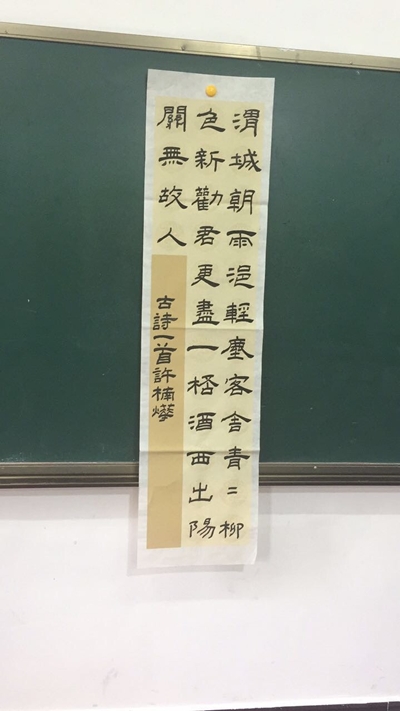 渭城朝雨浥輕塵客舍青〻柳
色新勸君更盡一桮酒西出陽
關無故人
古詩一首許楠燁